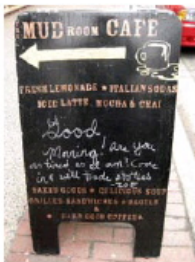 MUD ROOM CAFE
FRESH LEMONADE ★ ITALIAN SODAS
ICED LATTE, MOCHA & CHAI
Good
Morning! Are you
as tired as I am? Come
in & we'll trade stories
BAKED GOODS ★ DELICIOUS SOUP
GRILLED SANDWICHES ★ BAGELS
&
DARN GOOD COFFEE ★